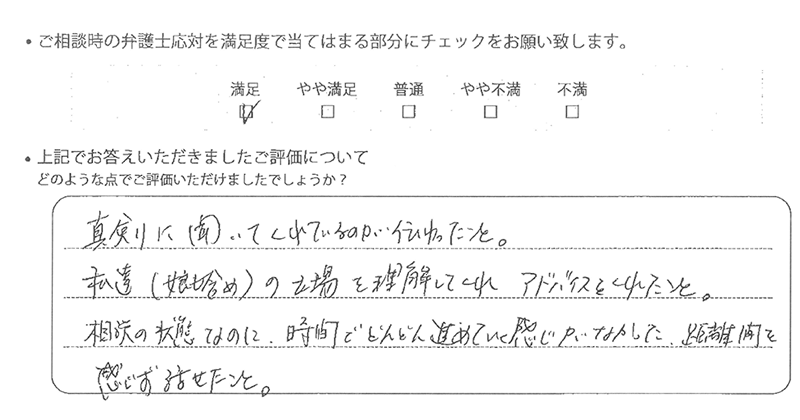 • ご相談時の弁護士応対を満足度で当てはまる部分にチェックをお願い致します。
満足 やや満足 普通 やや不満 不満
• 上記でお答えいただきましたご評価について
どのような点でご評価いただけましたでしょうか？
真剣に聞いてくれているのが伝わったこと。
私達（娘も含め）の立場を理解してくれ アドバイスをくれたこと。
相談の状態なのに、時間でどんどん進めていく感じがなかした、距離間を
感じず話せたこと。